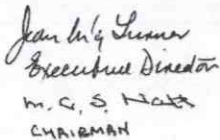 Jean McG Turner
Executive Director
M. G. S. 
CHAIRMAN